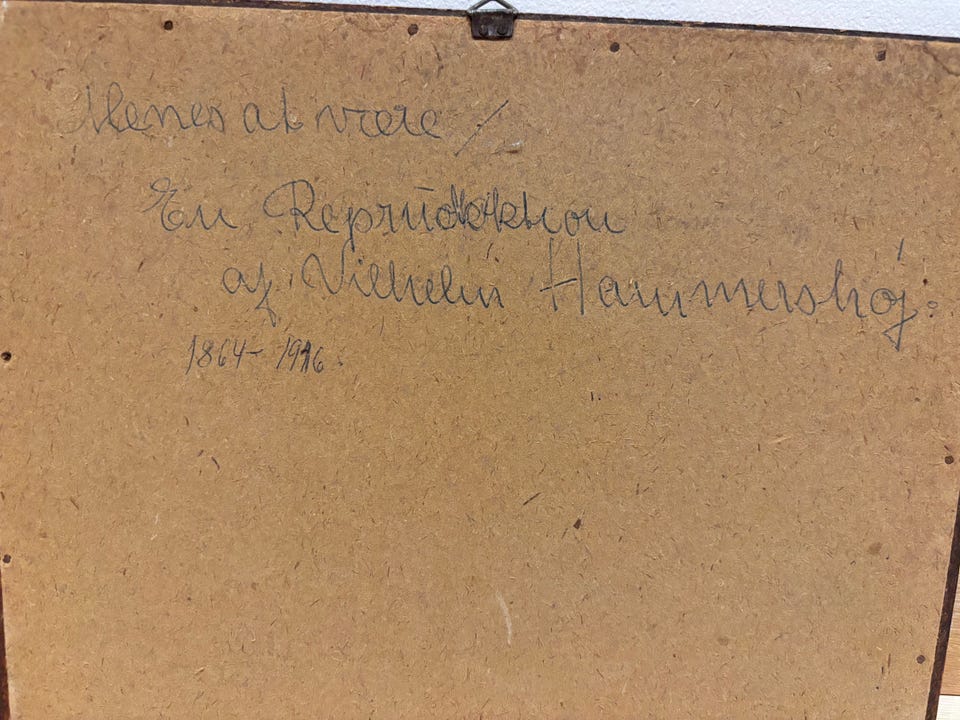 Menes at være /
En Reprūdüktion
af Vilhelm Hammershøj.
1864-1916.